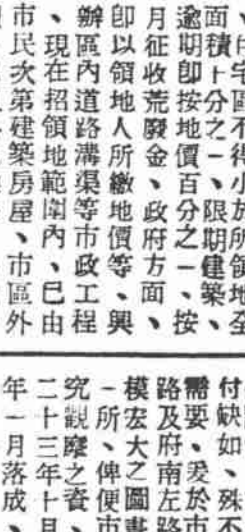 、住宅區不得小於所領地全
面積十分之一、限期健築、
逾期即按地價百分之一、按
月征收荒廢金、政府方面、
即以領地人所繳地價等、興
辦區內道路溝渠等市政工程
、現在招領地範圍內、已由
市民次第建築房屋、市區外
付缺如、殊不
需要、爰於市
路及府南左路
模宏大之圖書
一所、俾便市
究觀摩之資、
二十三年十月
年一月落成、